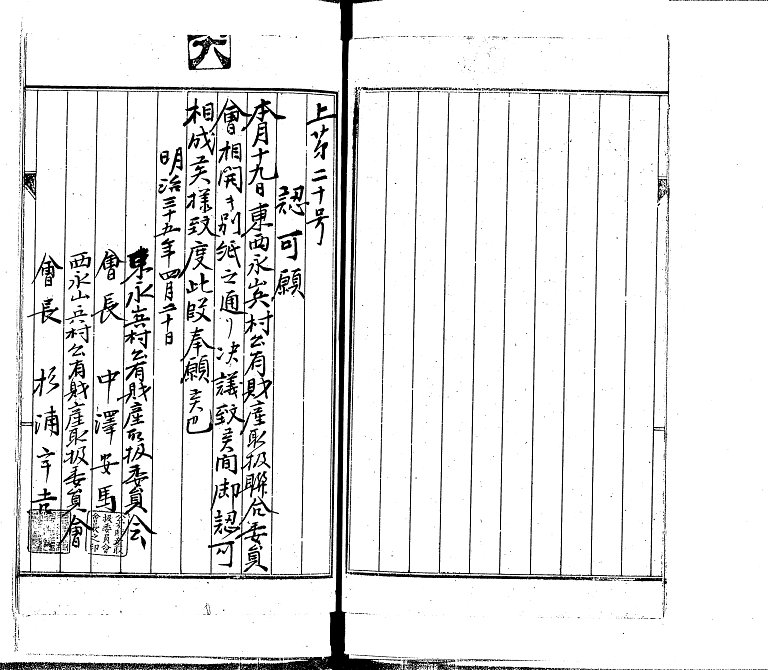 六
上第二十号
認可願
本月十九日東西永山兵村公有財産取扱聯合委員
會相開キ別紙之通リ決議致候間御認可
相成候様致度此段奉願候也
明治三十五年四月二十日
東永山兵村公有財産取扱委員会
會長 中澤安馬
西永山兵村公有財産取扱委員會
會長 杉浦辛吉